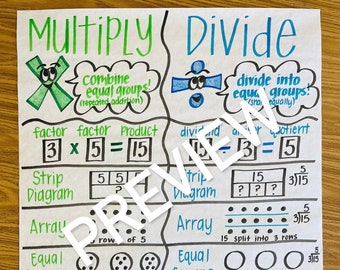 Multiply Divide
combine equal groups! (repeated addition)
divide into equal groups! (share equally)
factor factor product
3 x 5 = 15
quotient
15 3 = 5
Strip Diagram
5 5 5
?
Strip Diagram
15
? ? ?
5
3)15
Array
rows of 5
Array
15 split into 3 rows
5
3)15
Equal
Equal
5
3)15
PREVIEW